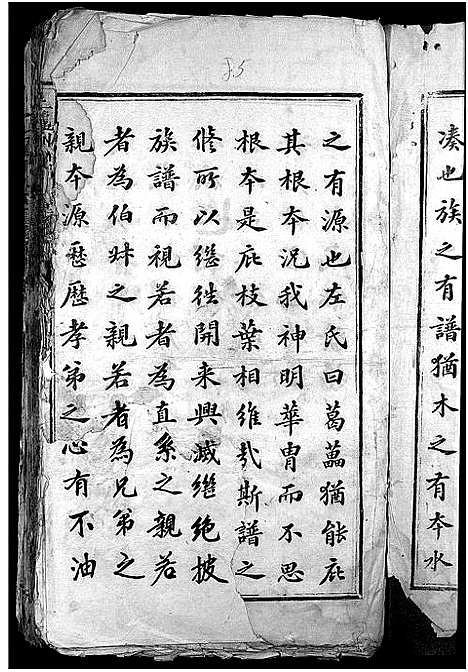 湊也族之有譜猶木之有本水
之有源也左氏曰葛藟猶能庇
其根本況我神明華胄而不思
根本是庇枝葉相維哉斯譜之
修所以繼往開来興滅繼絶披
族譜而視若者為直系之親若
者為伯叔之親若者為兄弟之
親本源歷歷孝弟之心有不油
85